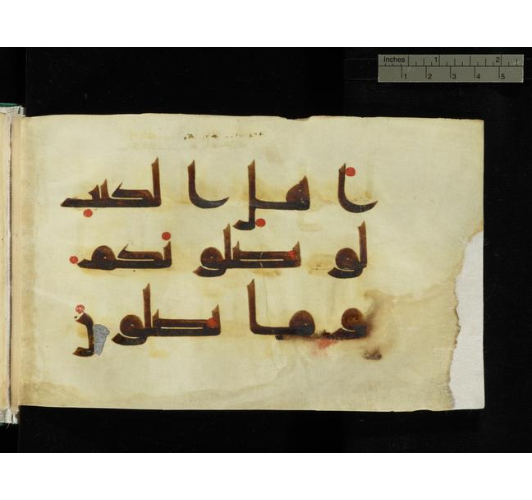 Inches 1 2
1 2 3 4 5
اهل الكتب
لو يضلونكم
وما يضلون